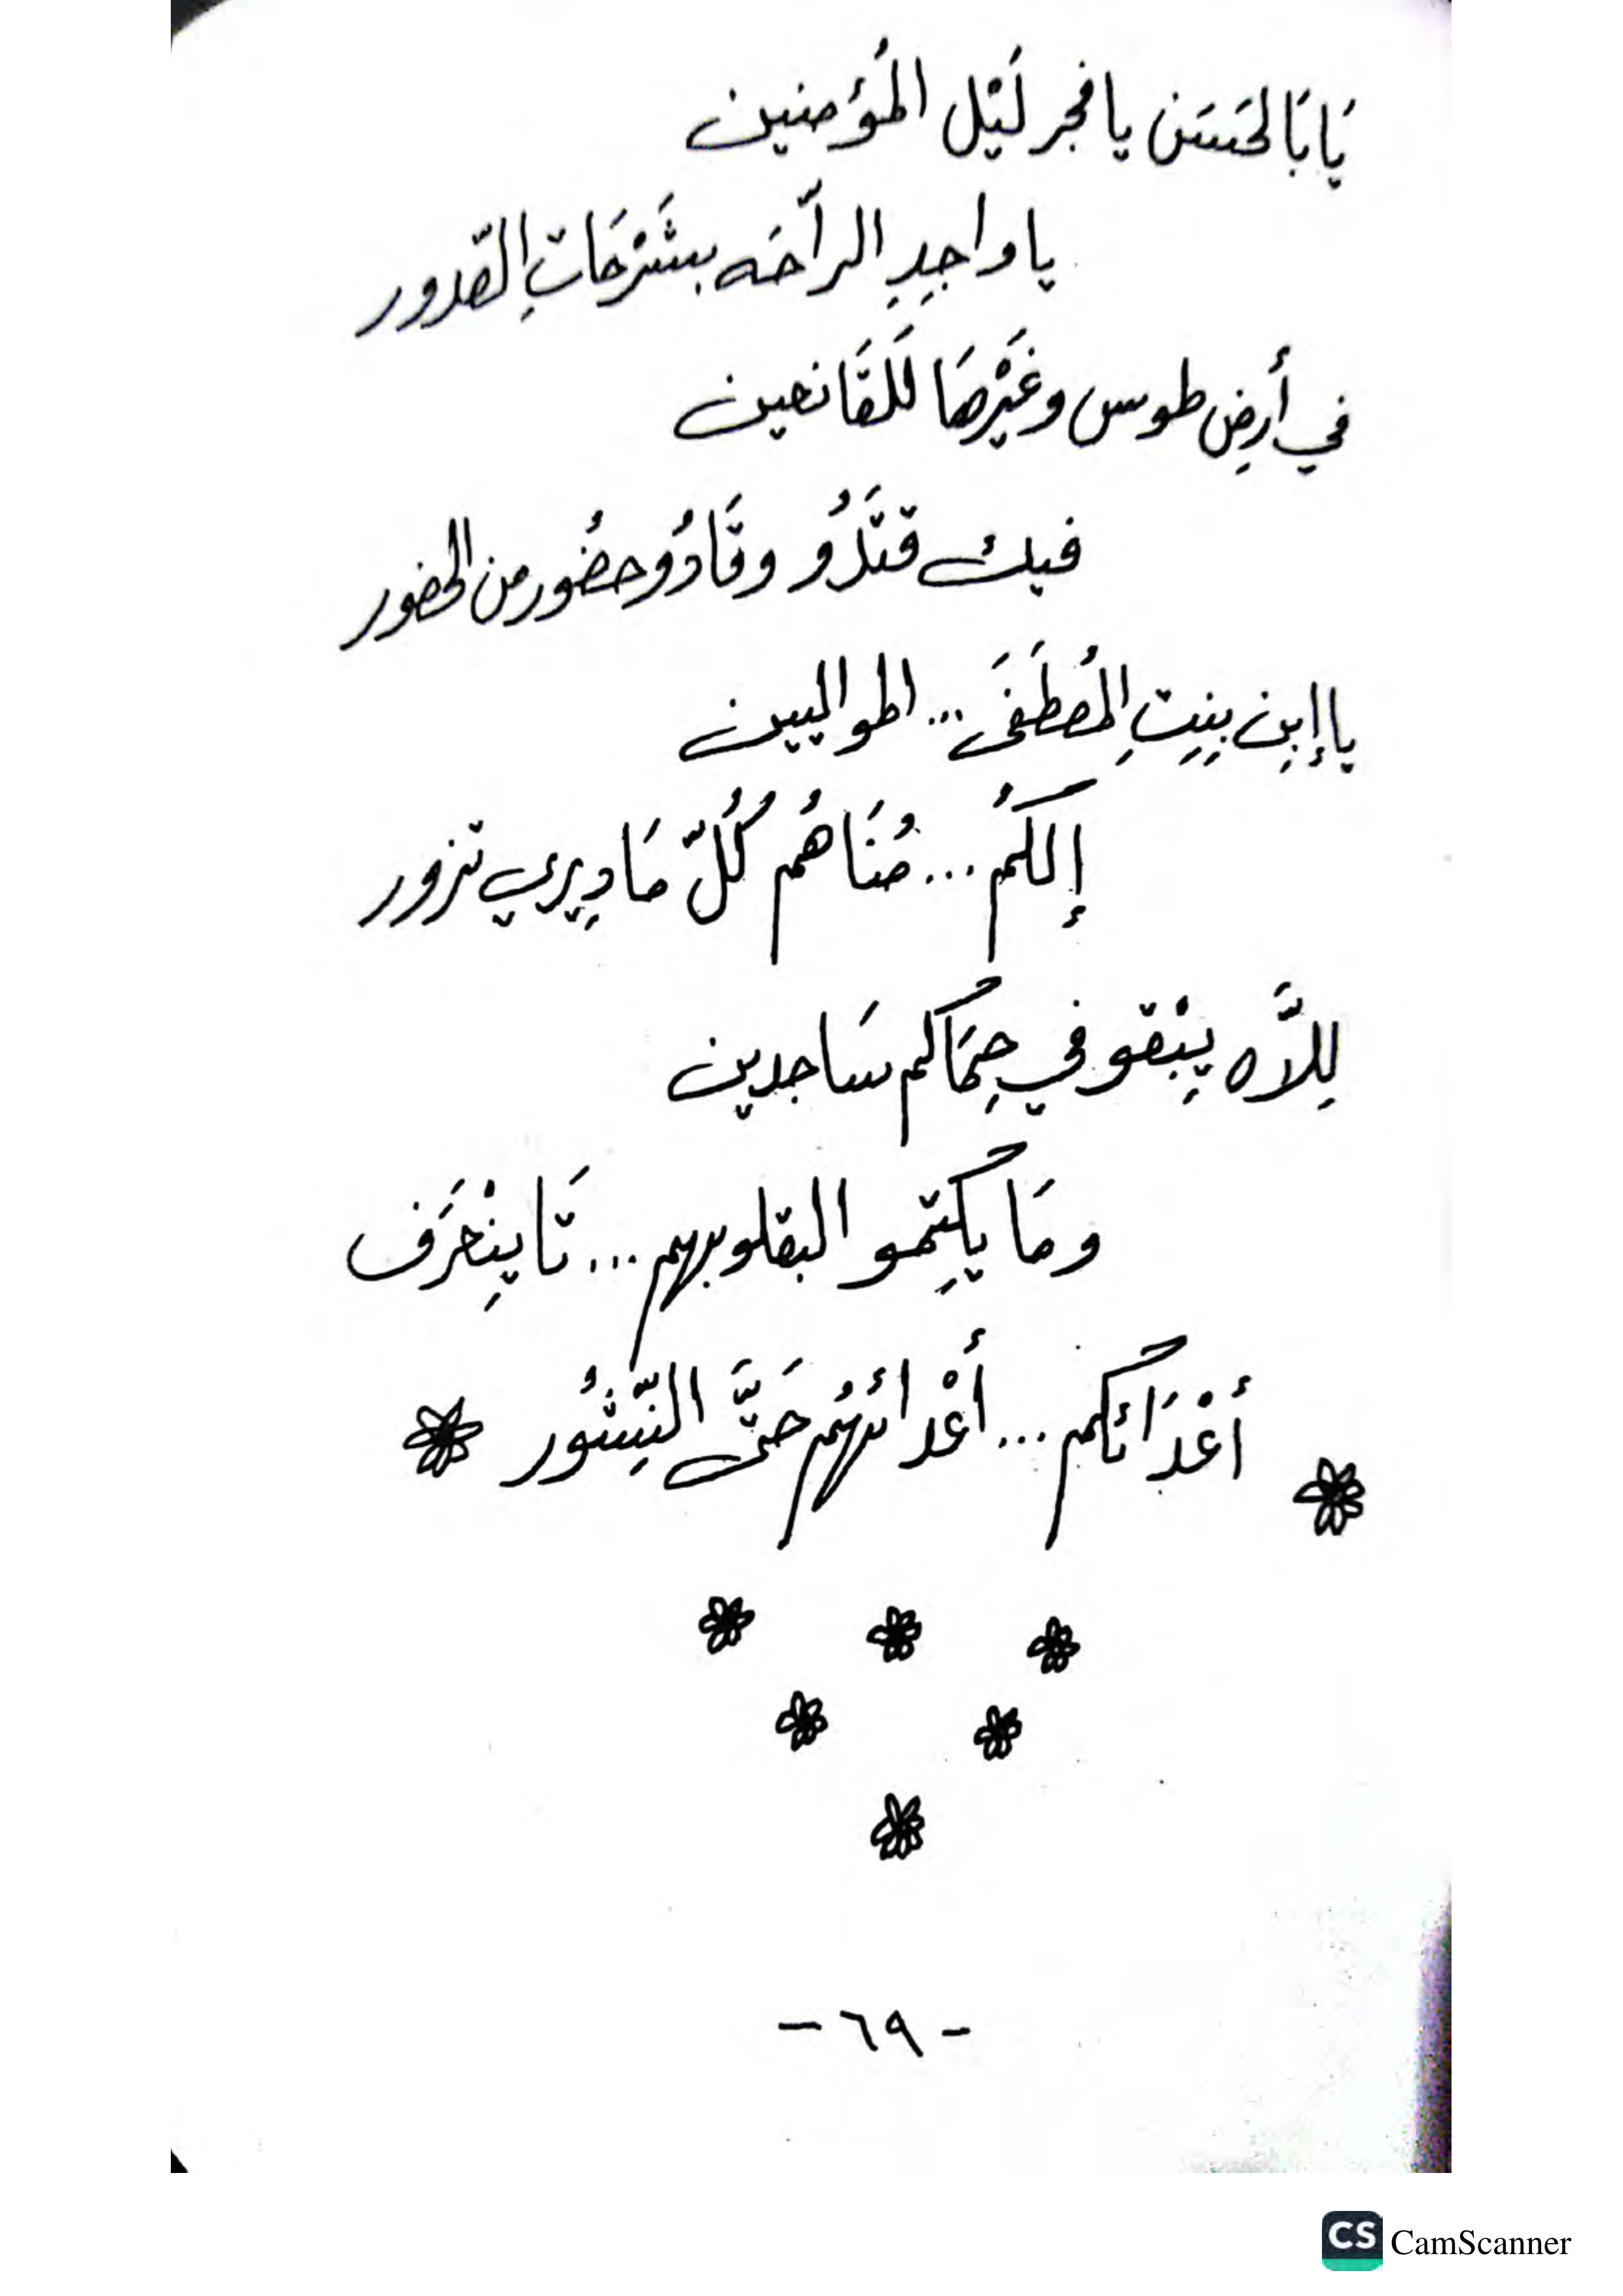 يَابَا لحَسَن يا فجر لَيْل المُؤمنين
يا واجِدِ الرآحَه بشَرْحَاتِ الصّدور
في أرضِ طوس وغَيْرهَا للقَانعين
فيك قتَدُو وقَادُو حضُور من الحضور
يا إبِن بِنِتِ المُصطَفَى ... الموالیین
إلكُم ... مُنَاهُم كُلّ مَا دِيري تزور
لِلاَّه يِبْقو في حِمَاكم سَاجدين
ومَا يكِتمو البقلوبهم ... تَا يِنْحَرَف
أعْدَائكم ... أعْدائهُم حَتَّى النِّشُور
- ٦٩ -
CS CamScanner